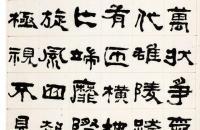 萬狀爭
代雄陵
有匹橫
比端靡
旋風四
極視不見